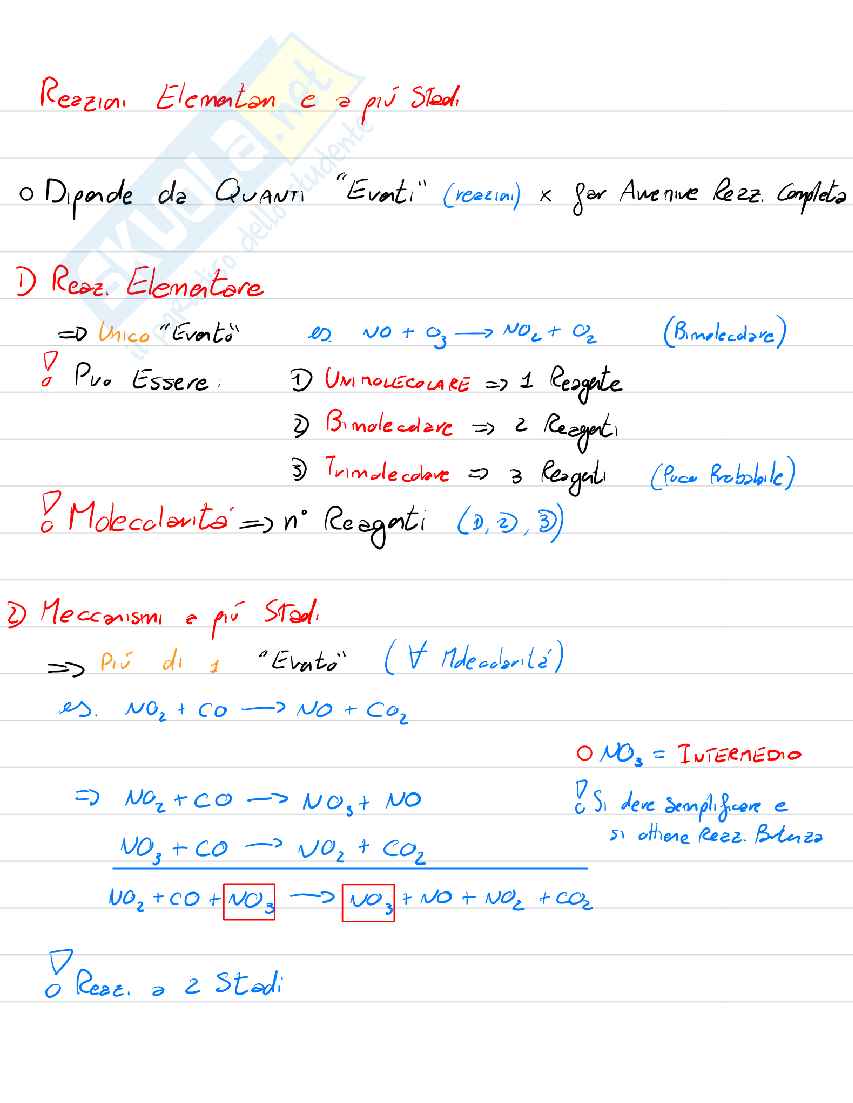 Reazioni Elementari e a più Stadi
O Dipende da QUANTI "Eventi" (reazioni) x far Avvenire Reaz. Completa
1) Reaz. Elementare
=> Unico "Evento" es. NO + O₃ → NO₂ + O₂ (Bimolecolare)
! Può Essere: 1) UNIMOLECOLARE => 1 Reagente
2) Bimolecolare => 2 Reagenti
3) Trimolecolare => 3 Reagenti (Poco Probabile)
! Molecolarità => n° Reagenti (1, 2, 3)
2) Meccanismi a più Stadi
=> Più di 1 "Evento" (∀ Molecolarità)
es. NO₂ + CO → NO + CO₂
O NO₃ = INTERMEDIO
=> NO₂ + CO → NO₃ + NO
! Si deve semplificare e
si ottiene Reaz. Bilanza
NO₃ + CO → NO₂ + CO₂
NO₂ + CO + NO₃ → NO₃ + NO + NO₂ + CO₂
! Reaz. a 2 Stadi
SKUOLA.net
il paradiso dello studente